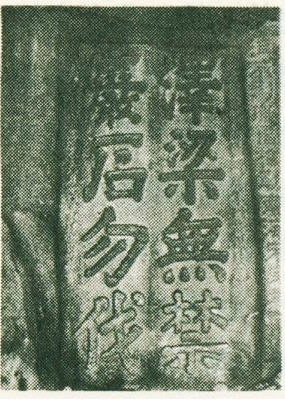 澤梁無禁
巖石勿伐